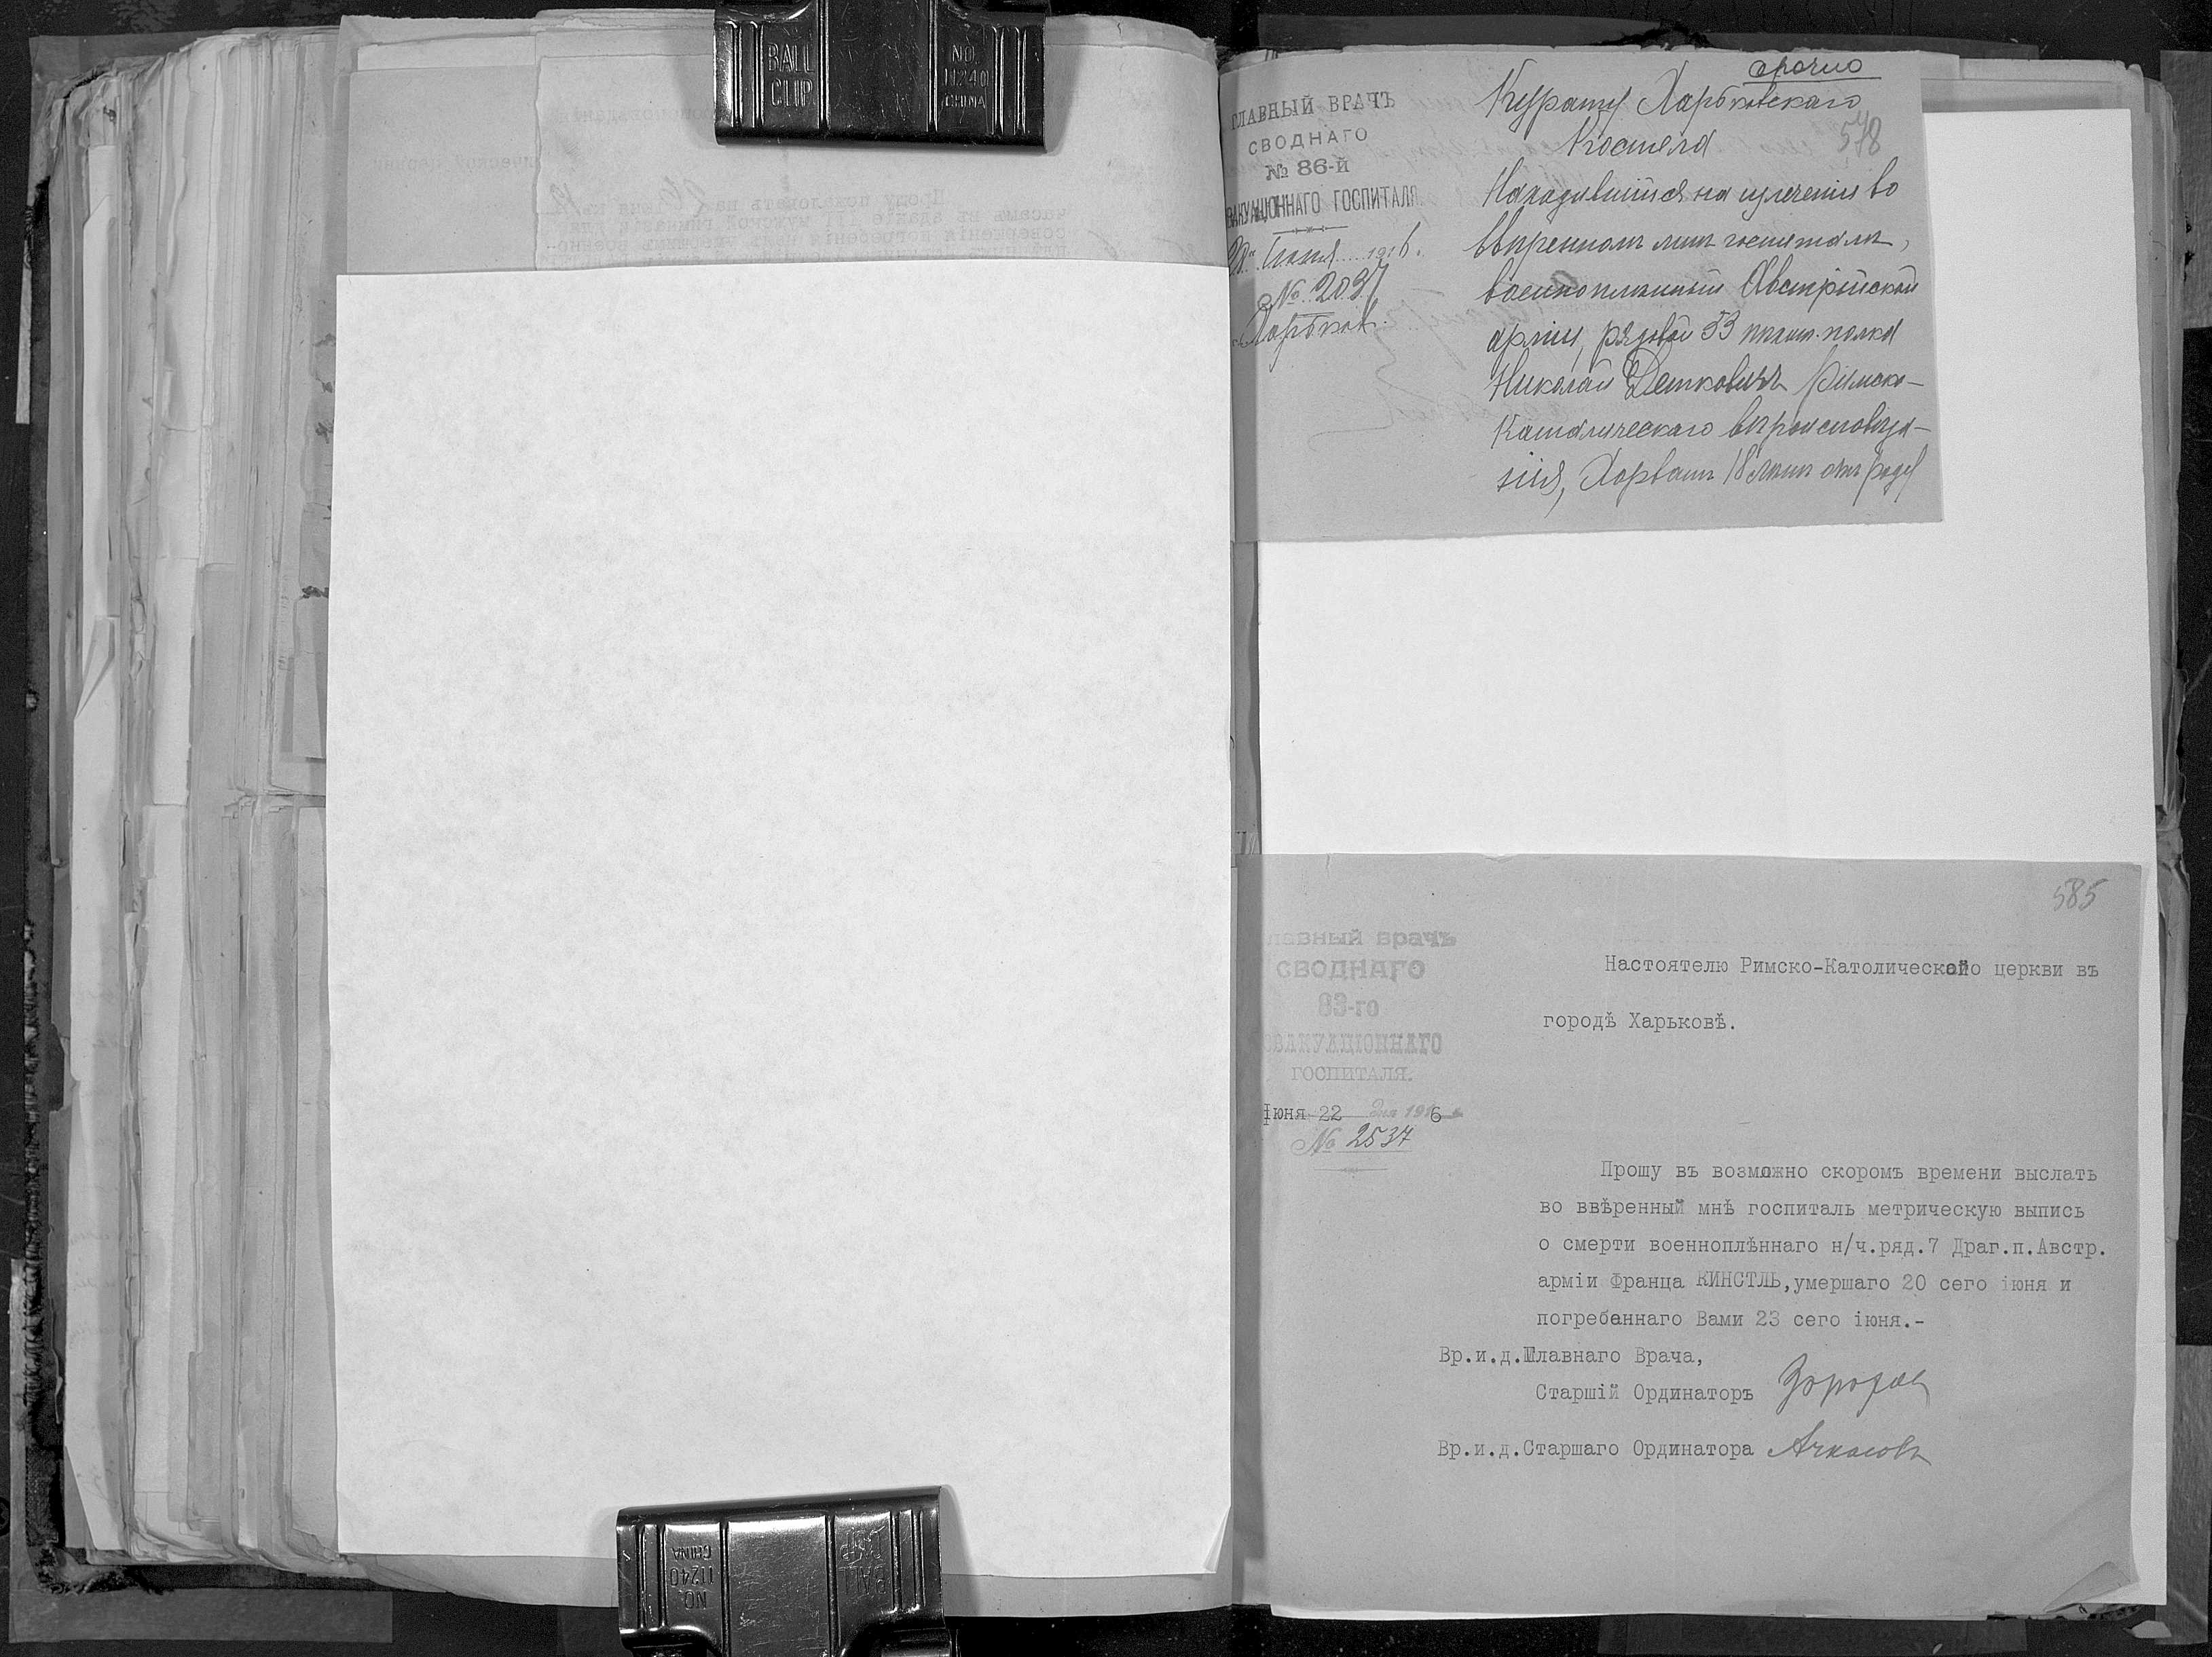 BALL
CLIP
NO.
11240
CHINA
Прошу пожаловать на
срочно
Курату Харьковскаго
Костела
578
ГЛАВНЫЙ ВРАЧЪ
СВОДНАГО
№ 86-й
ЭВАКУАЦIОННАГО ГОСПИТАЛЯ.
Iюня 1916.
№ 2037
Харьков.
Находившiйся на излеченiи во
ввѣренномъ мнѣ госпиталѣ,
военноплѣнный Австрiйской
армiи, рядовой 53 пѣхот. полка
Николай Детковичъ Римско-
Католическаго вѣроисповѣда-
нiя, Хорватъ 18 лѣтъ отъ роду
585
лавный врачъ
СВОДНАГО
83-го
ЭВАКУАЦIОННАГО
ГОСПИТАЛЯ.
Iюня 22 дня 1916
№ 2537
Настоятелю Римско-Католической церкви въ
городѣ Харьковѣ.
Прошу въ возможно скоромъ времени выслать
во ввѣренный мнѣ госпиталь метрическую выпись
о смерти военноплѣннаго н/ч.ряд.7 Драг.п.Австр.
армiи Франца КИНСТЛЬ,умершаго 20 сего iюня и
погребеннаго Вами 23 сего iюня.-
Вр.и.д.Главнаго Врача,
Старшiй Ординаторъ
Вр.и.д.Старшаго Ординатора Ачкасовъ
NO.
11240
CHINA
BALL
CLIP